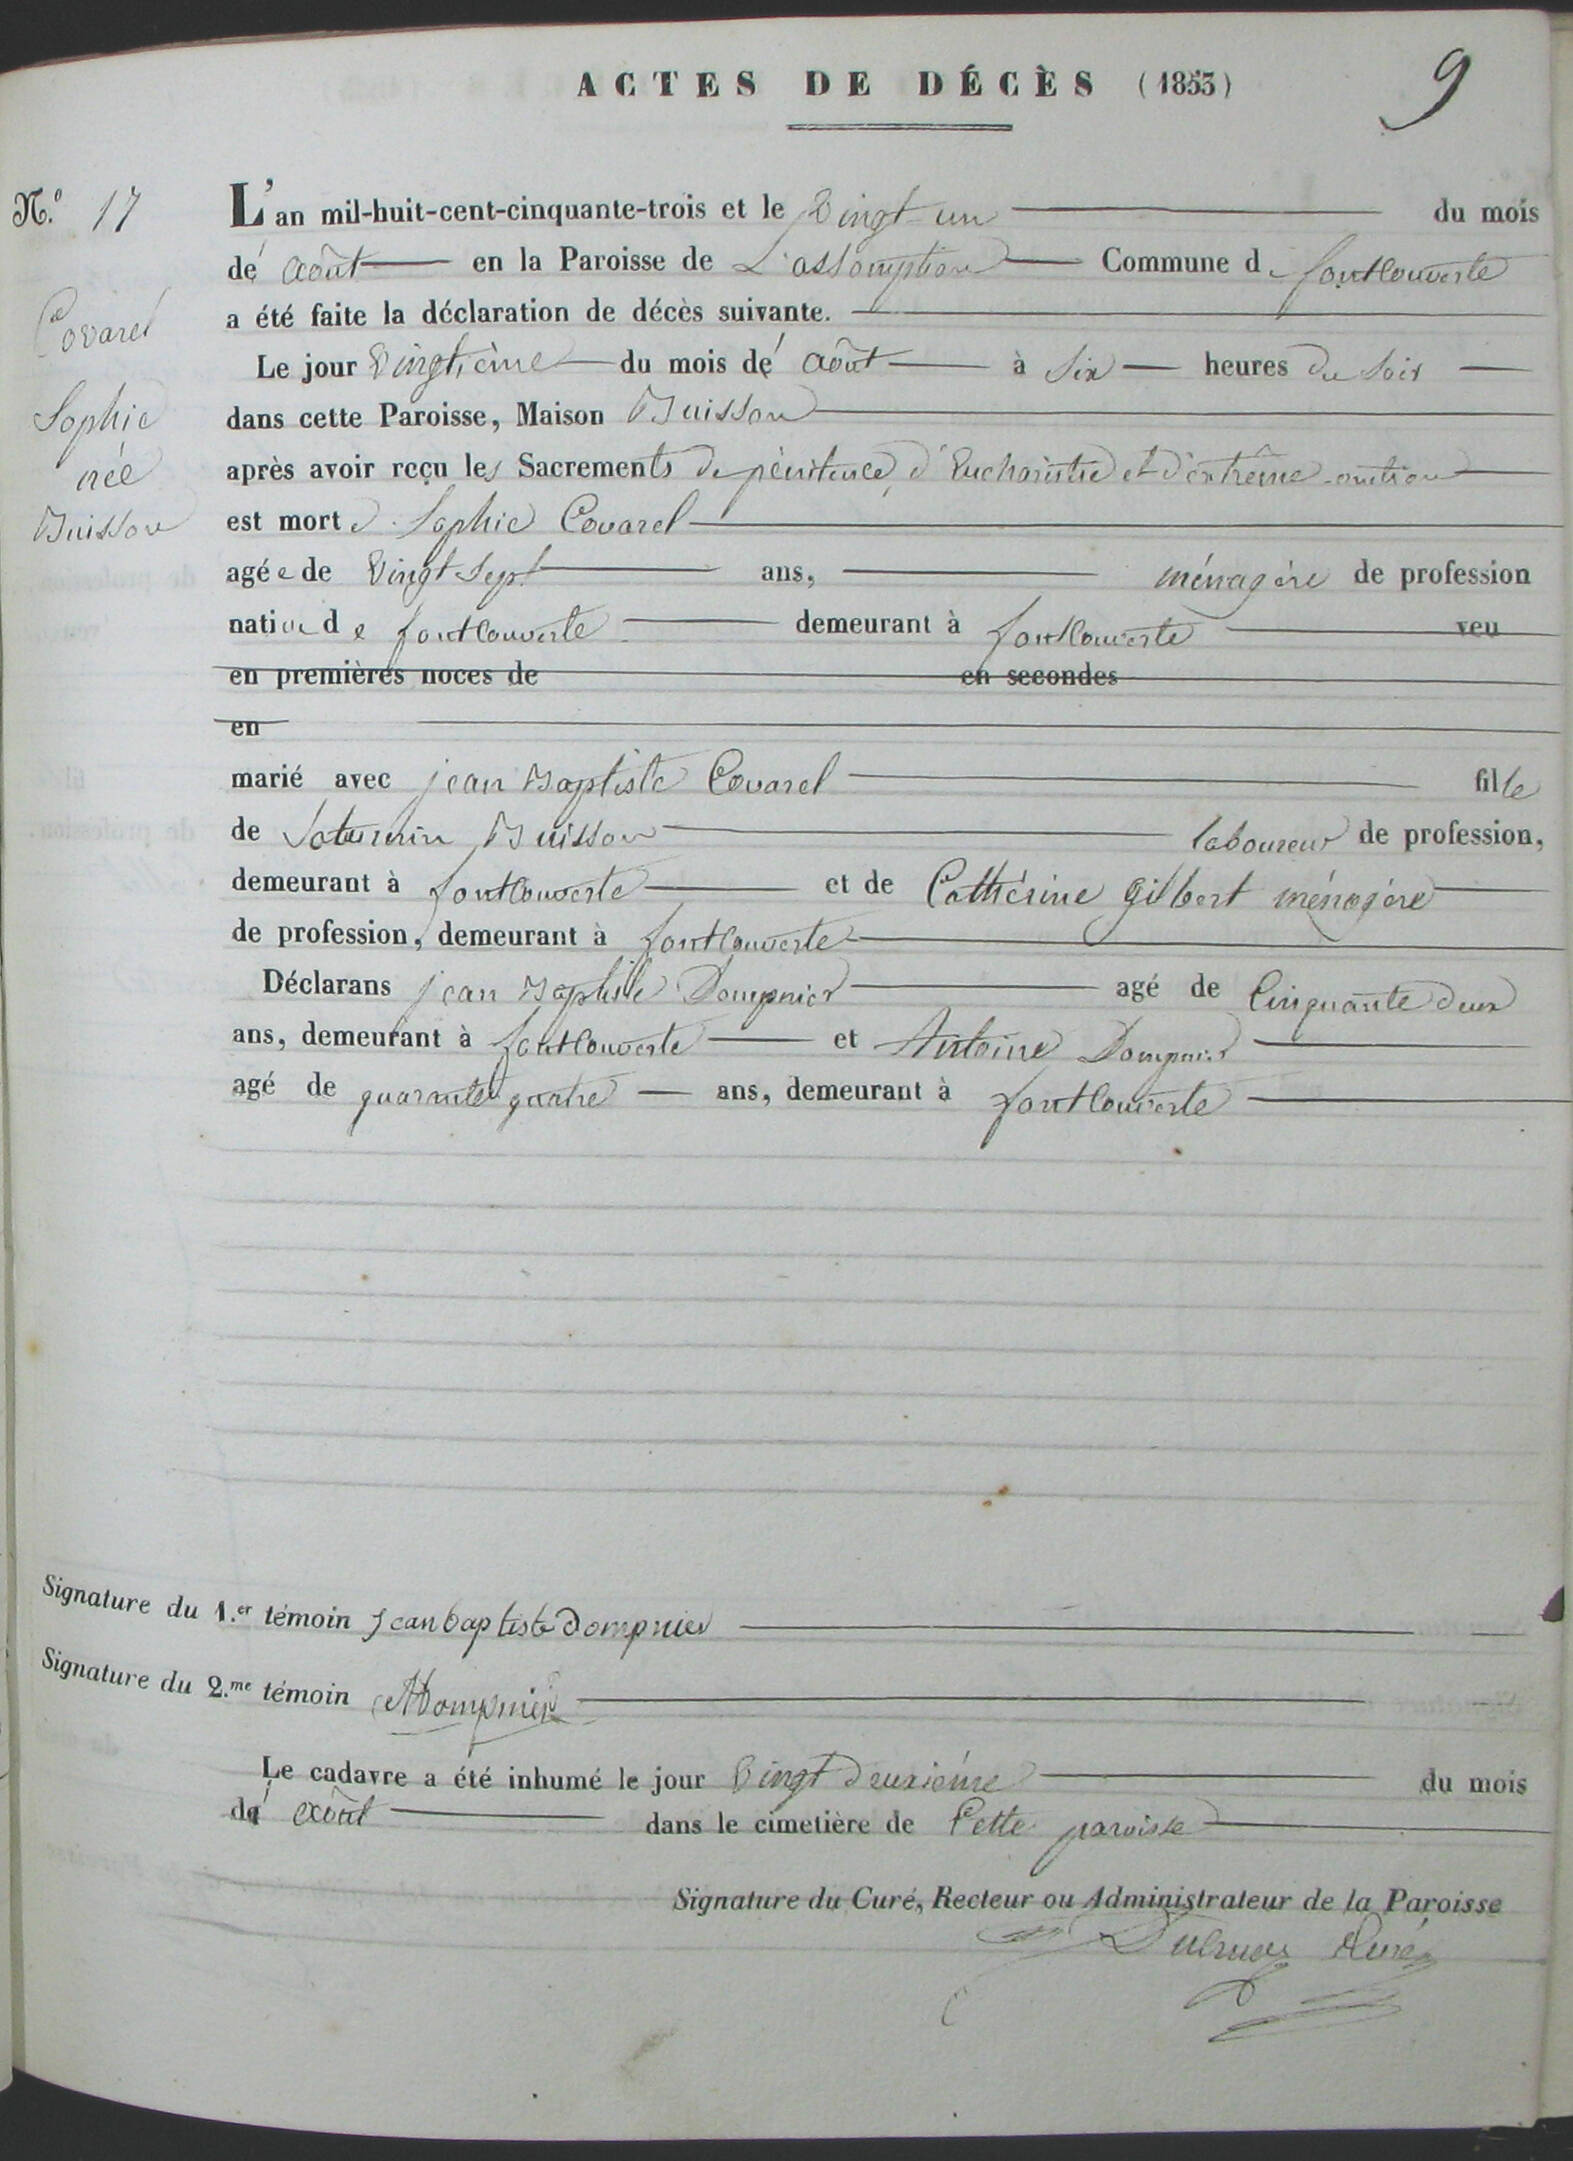 ACTES DE DÉCÈS (1853) 9
N.º 17
Covarel
Sophie
née
Buisson
L'an mil-huit-cent-cinquante-trois et le Vingt un du mois
d'août en la Paroisse de L'assomption Commune de fontcouverte
a été faite la déclaration de décès suivante.
Le jour Vingtième du mois d'août à Six heures du soir
dans cette Paroisse, Maison Buisson
après avoir reçu les Sacrements de pénitence, d'Eucharistie et d'extrême-onction
est morte Sophie Covarel
agée de Vingt Sept ans, ménagère de profession
native de fontcouverte demeurant à fontcouverte veu
en premières noces de en secondes
en
marié avec jean Baptiste Covarel fille
de Saturnin Buisson laboureur de profession,
demeurant à fontcouverte et de Cathérine Gilbert ménagère
de profession, demeurant à fontcouverte
Déclarans jean Baptiste Dompnier agé de Cinquante deux
ans, demeurant à fontcouverte et Antoine Dompnier
agé de quarante quatre ans, demeurant à fontcouverte
Signature du 1.er témoin jean baptiste Dompnier
Signature du 2.me témoin ADompnier
Le cadavre a été inhumé le jour Vingt deuxième du mois
d'août dans le cimetière de Cette paroisse
Signature du Curé, Recteur ou Administrateur de la Paroisse
Curé